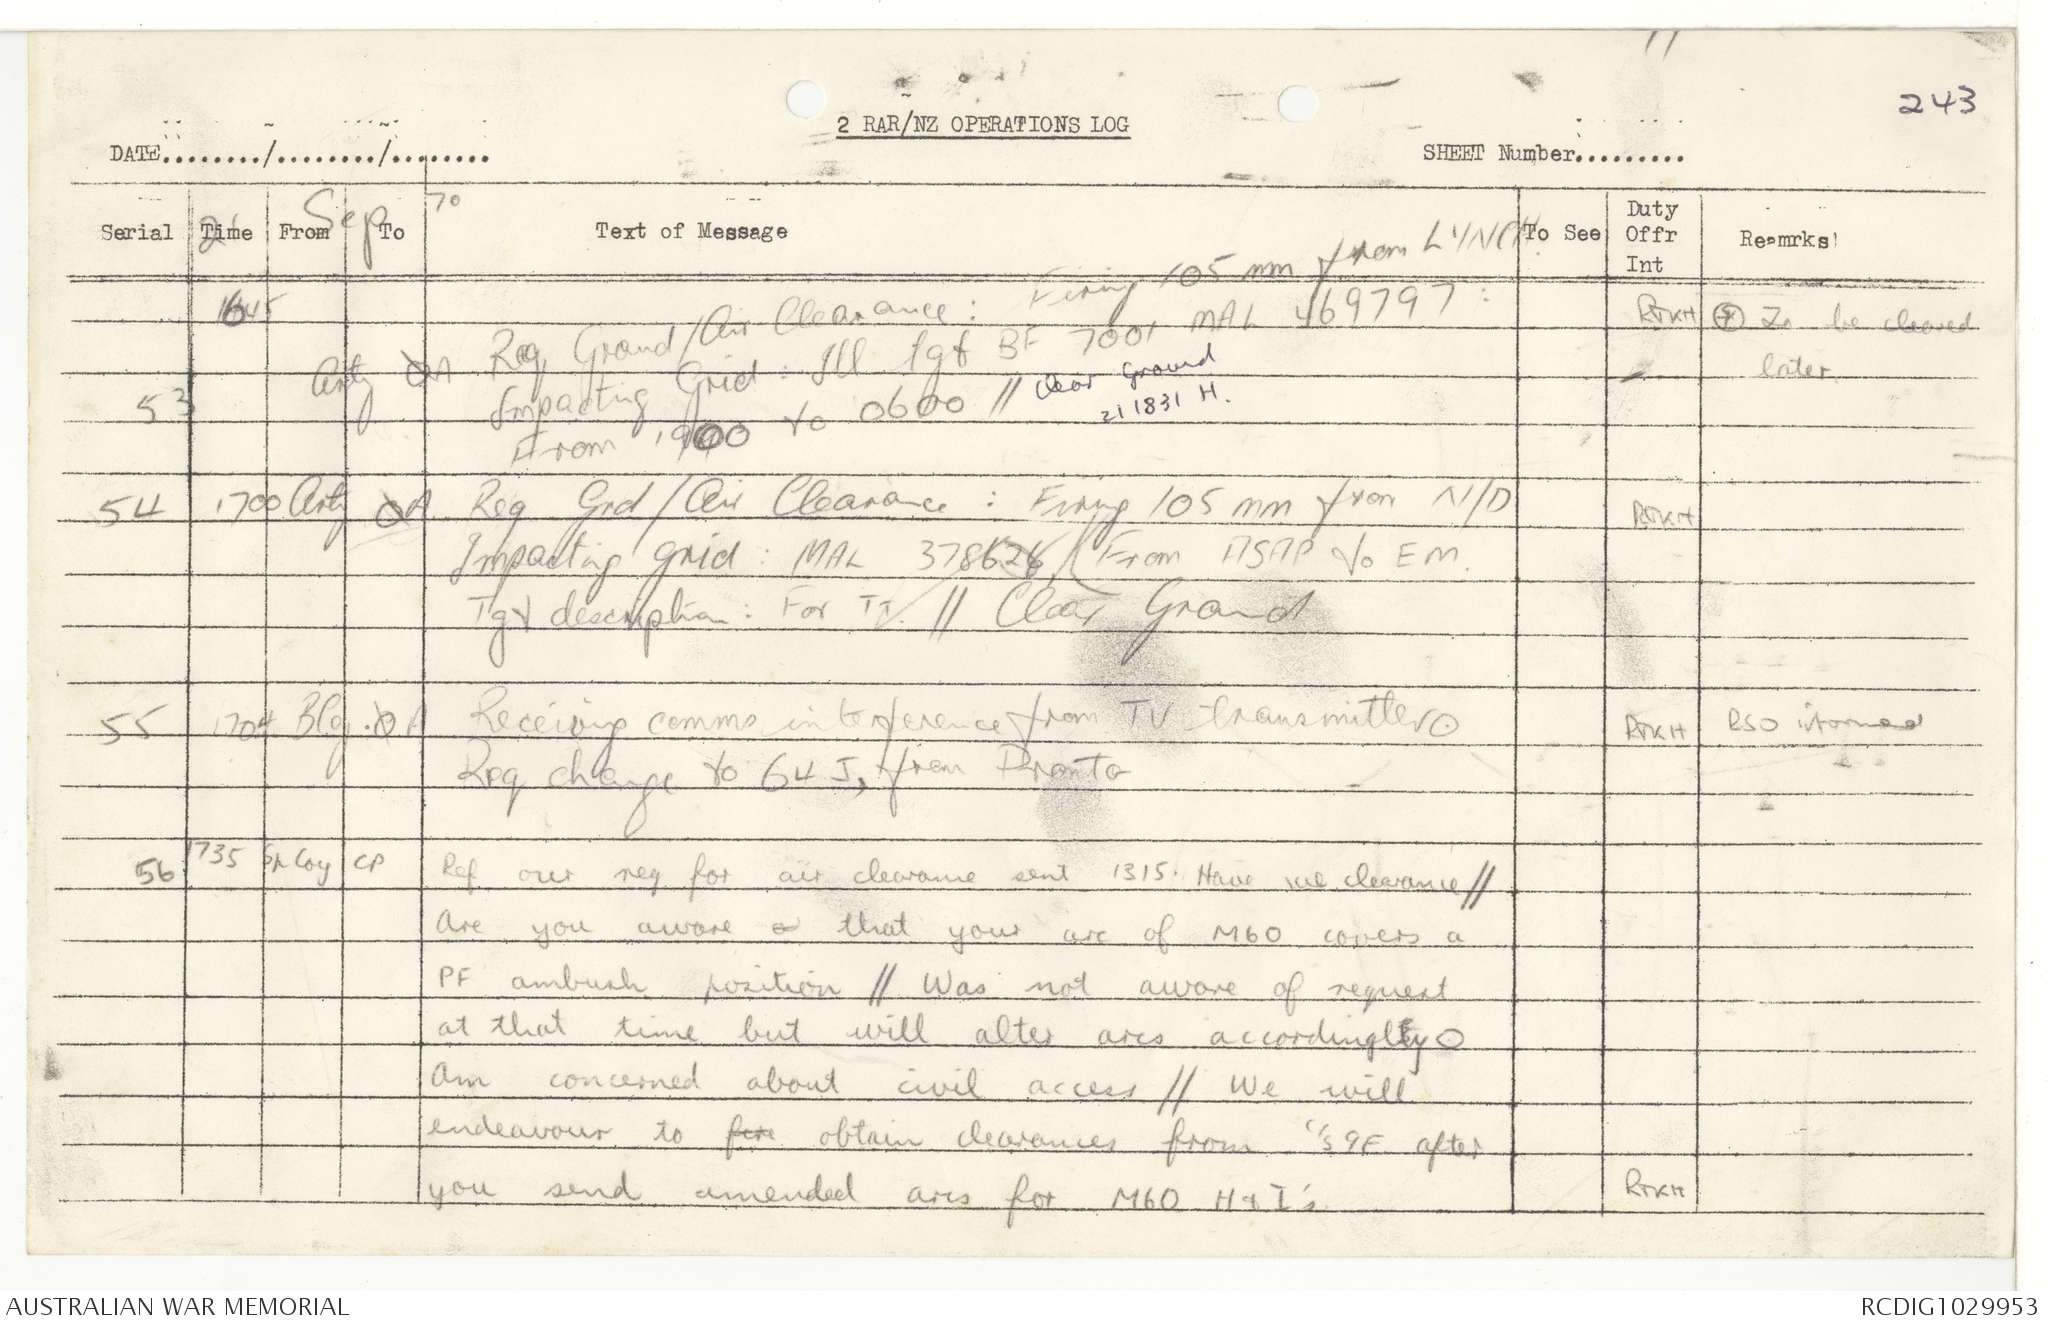 243
2 RAR/NZ OPERATIONS LOG
DATE......../......../........ SHEET Number.........
21 Sep 70
Serial Time From To Text of Message To See Duty Offr Int Reamrks
53 1645 Arty A Req Ground/Air Clearance: Firing 105 mm from LYNCH RTKH To be cleared
Impacting Grid: Ill Tgt BF 7001 MAL 469797: later
From 1900 to 0600 // Clear Ground
211831 H.
54 1700 Arty A Req Grd/Air Clearance: Firing 105 mm from N/D RTKH
Impacting grid: MAL 378626 From ASAP to EM.
Tgt description: For // Clear Ground
55 1704 Blg A Receiving comms interference from TV transmitter O RTKH RSO informed
Req change to 64 from Pronto
56 1735 Sp Coy CP Ref our req for air clearance sent 1315. Have we clearance //
Are you aware that your arc of M60 covers a
PF ambush position // Was not aware of request
at that time but will alter arcs accordingly O
Am concerned about civil access // We will
endeavour to fire obtain clearances from c/s 9E after
you send amended arcs for M60 H & I's RTKH
AUSTRALIAN WAR MEMORIAL RCDIG1029953